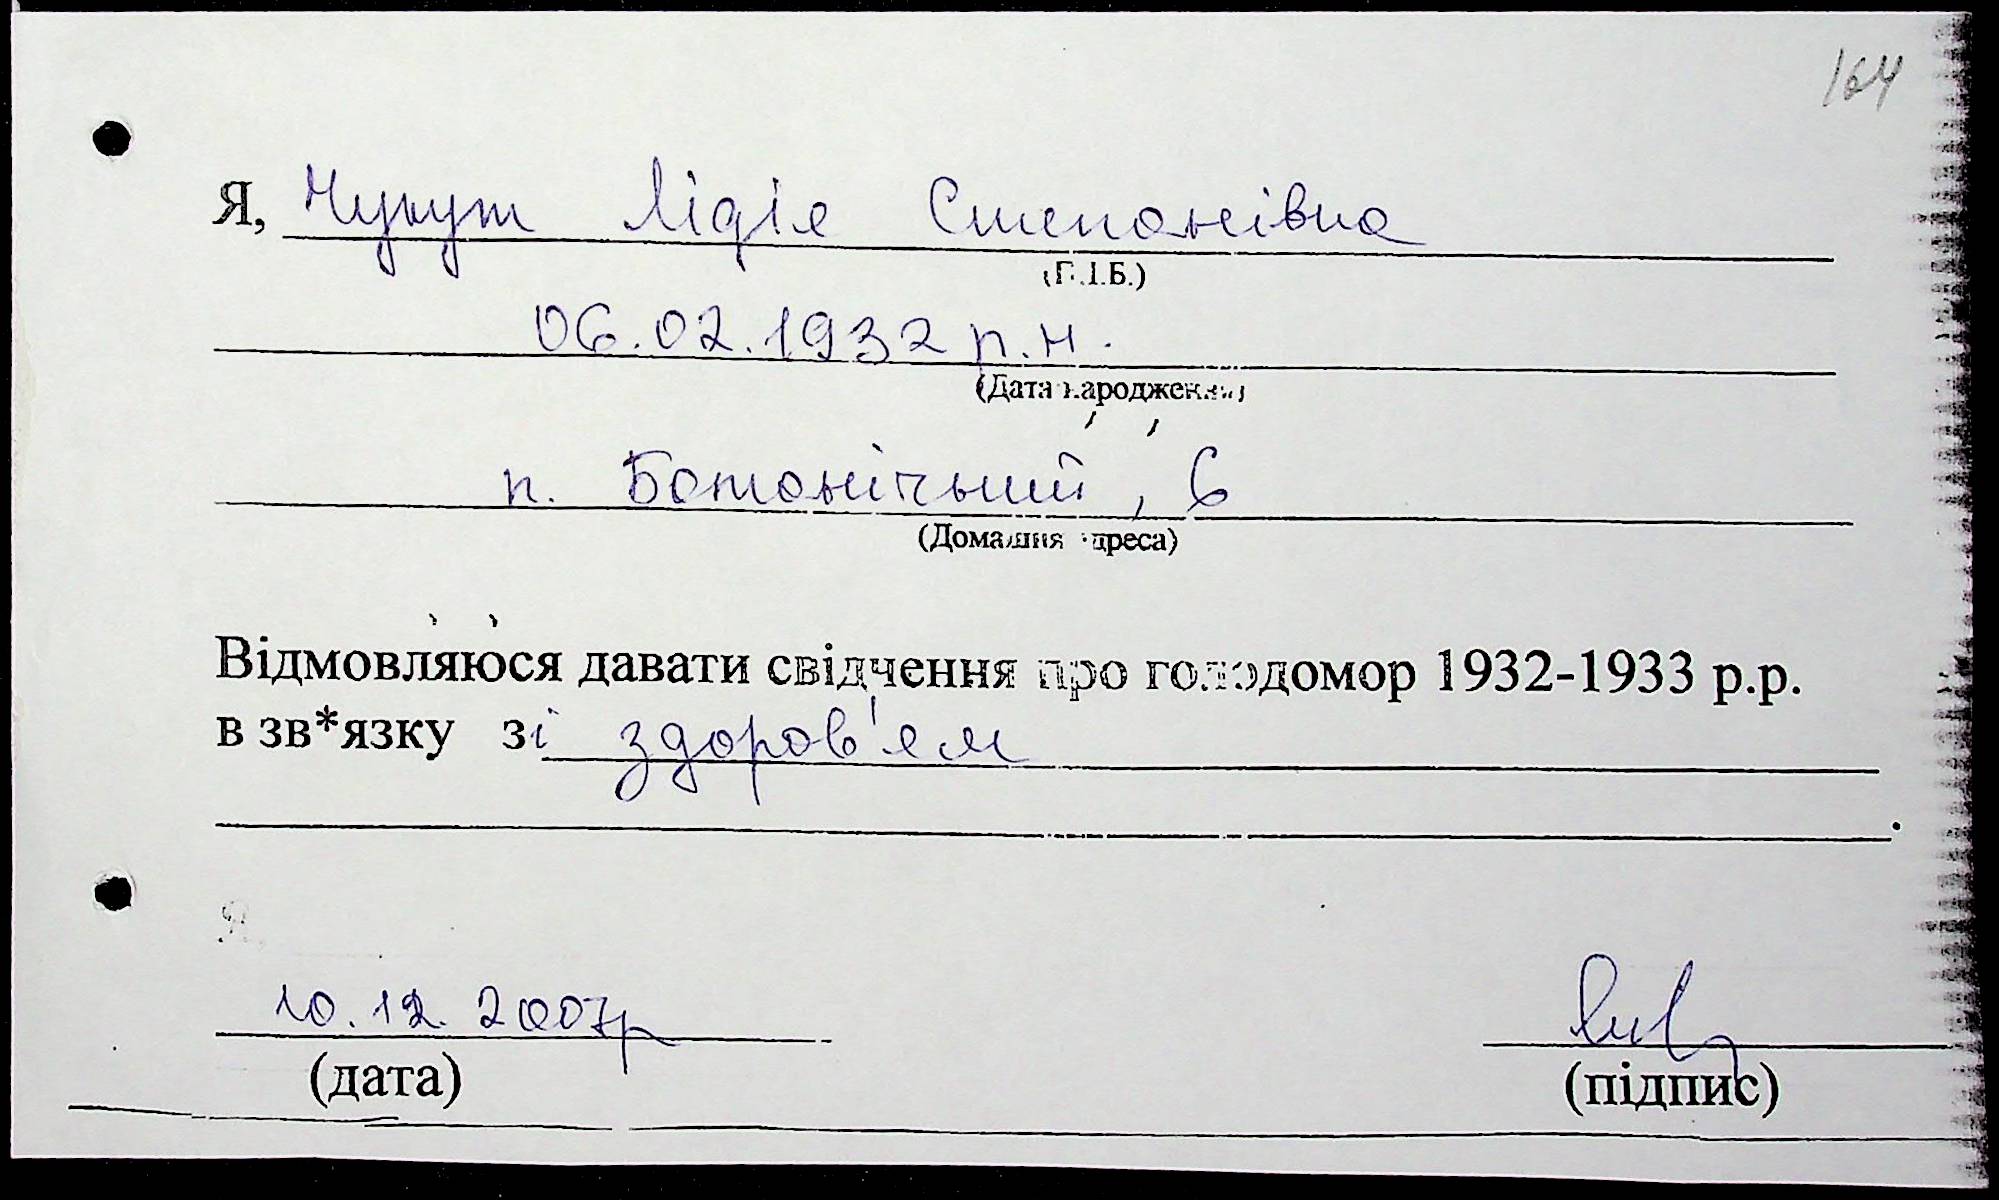 164
Я, Чукут Лідія Степанівна
(П.І.Б.)
06.02.1932 р.н.
(Дата народження)
п. Ботанічний, 6
(Домашня адреса)
Відмовляюся давати свідчення про голодомор 1932-1933 р.р.
в зв*язку зі здоров'ям
.
Я,
10.12.2007р
(дата)
(підпис)